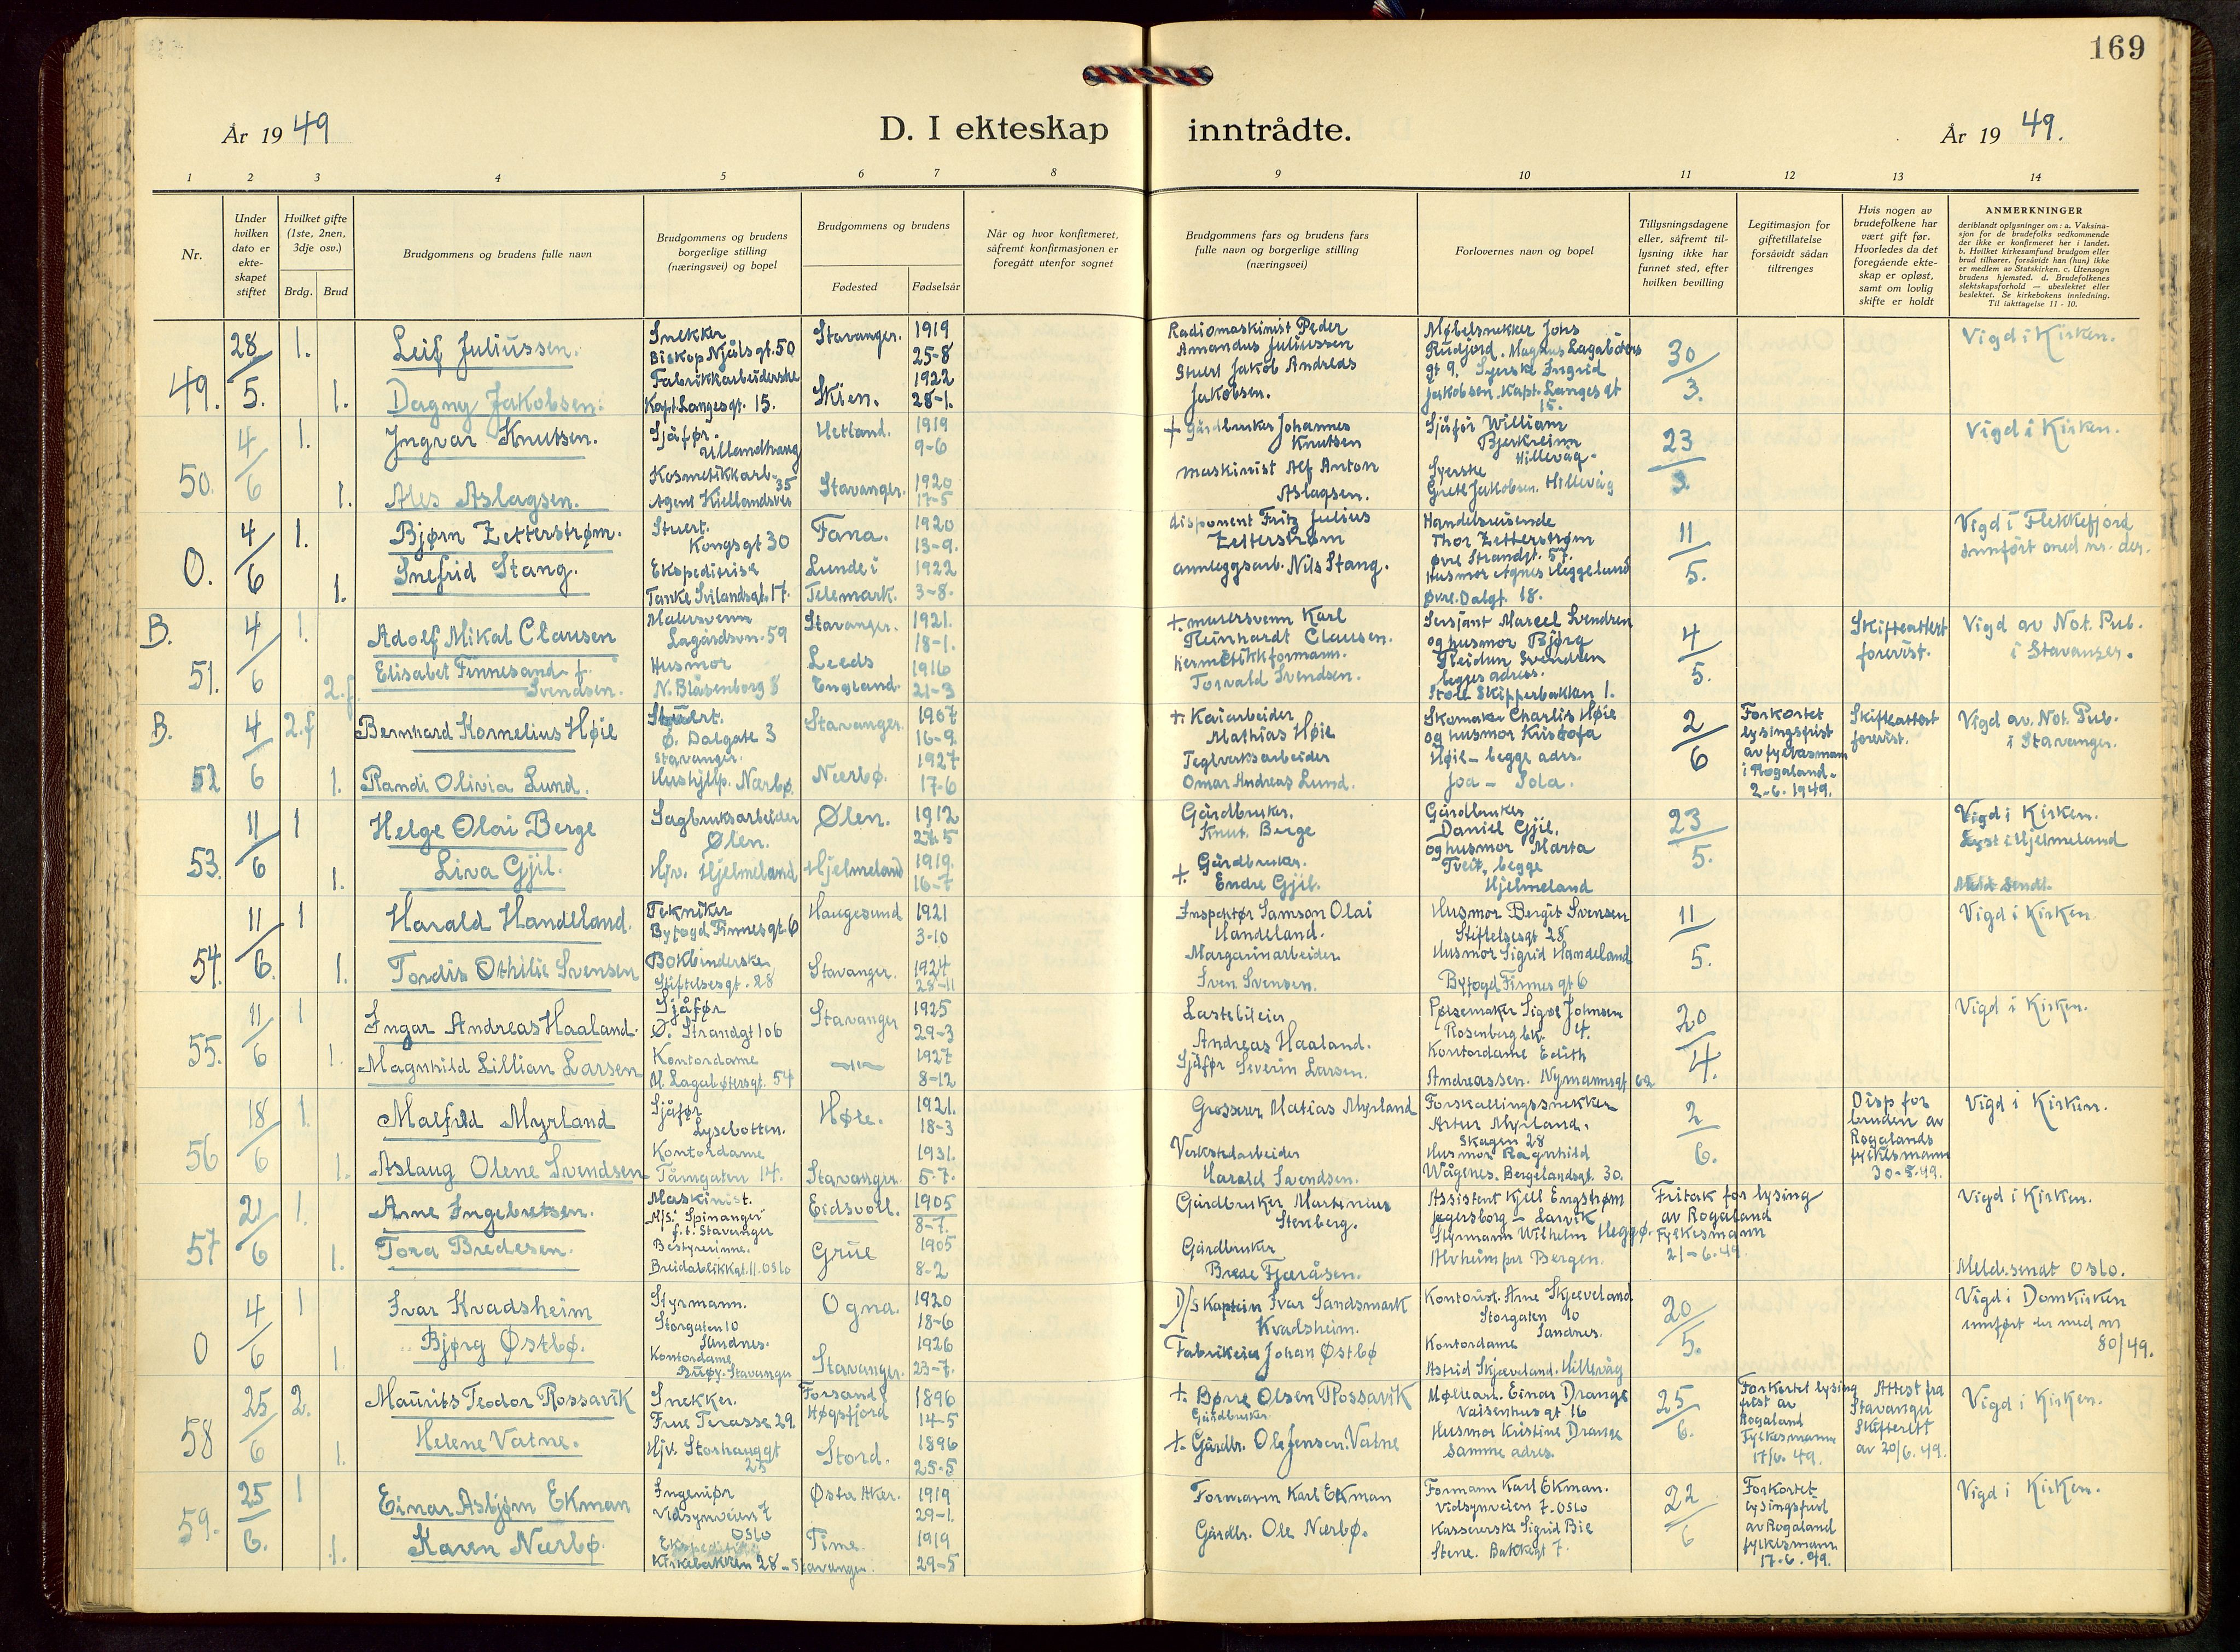 169
År 1949
D. I ekteskap inntrådte.
År 1949.
1 2 3 4 5 6 7 8 9 10 11 12 13 14
Nr.
Under hvilken dato er ekte-skapet stiftet
Hvilket gifte (1ste, 2nen, 3dje osv.)
Brdg. Brud
Brudgommens og brudens fulle navn
Brudgommens og brudens borgerlige stilling (næringsvei) og bopel
Brudgommens og brudens
Fødested Fødselsår
Når og hvor konfirmeret, såfremt konfirmasjonen er foregått utenfor sognet
Brudgommens fars og brudens fars fulle navn og borgerlige stilling (næringsvei)
Forlovernes navn og bopel
Tillysningsdagene eller, såfremt til-lysning ikke har funnet sted, efter hvilken bevilling
Legitimasjon for giftetillatelse forsåvidt sådan tiltrenges
Hvis nogen av brudefolkene har vært gift før. Hvorledes da det foregående ekte-skap er opløst, samt om lovlig skifte er holdt
ANMERKNINGER
deriblandt oplysninger om: a. Vaksina-sjon for de brudefolks vedkommende der ikke er konfirmeret her i landet. b. Hvilket kirkesamfund brudgom eller brud tilhører, forsåvidt han (hun) ikke er medlem av Statskirken. c. Utensogn brudens hjemsted. d. Brudefolkenes slektskapsforhold — ubeslektet eller beslektet. Se kirkebokens innledning. Til iakttagelse 11 - 10.
49. 28/5. 1. Leif Juliussen. Snekker Biskop Njålsgt. 50 Stavanger. 1919 25-8
1. Dagny Jakobsen. Fabrikkarbeiderske Kapt. Langesgt. 15. Skien. 1922 28-1.
Radiomaskinist Peder Amandus Juliussen
Stuert Jakob Andreas Jakobsen.
Møbelsnekker Johs Rudjord. Magnus Lagabøters gt 9. Syerske Ingrid Jakobsen. Kapt. Langes gt 15.
30/3. Vigd i Kirken.
50. 4/6 1. Ingvar Knutsen. Sjåfør. Ullandhaug Hetland. 1919 9-6
1. Ales Aslagsen. Kosmetikkarb. Agent Kiellandsvei 35 Stavanger. 1920 17-5
+ Gårdbruker Johannes Knutsen
maskinist Alf Anton Aslagsen.
Sjåfør William Bjerkreim Hillevåg.
Syerske Grete Jakobsen. Hillevåg
23/3. Vigd i Kirken.
0. 4/6 1. Bjørn Zetterstrøm. Stuert. Kongsgt 30 Fana. 1920 13-9.
1. Snefrid Stang. Ekspeditrise Tanke Svilandsgt. 17. Lunde i Telemark. 1922 3-8.
disponent Fritz Julius Zetterstrøm
annleggsarb. Nils Stang.
Handelsreisende Thor Zetterstrøm Øvre Strandgt. 57.
Husmor Agnes Heggelund Øvre. Dalgt. 18.
11/5. Vigd i Flekkefjord innført med nr. der.
B. 51. 4/6 1. Adolf Mikal Clausen Malersvenn Lagårdsvn. 59 Stavanger. 1921. 18-1.
2.f. Elisabet Finnesand f. Svendsen. Husmor N. Blåsenborg 8 Leeds England. 1916 21-3
+ murersvenn Karl Reinhardt Clausen.
hermetikkformann. Torvald Svendsen.
Sersjant Marcel Svendsen og husmor Bjørg Reidun Svendsen begges adress. Store Skipperbakken 1.
4/5. Skifteattest forevist. Vigd av Not. Pub. i Stavanger.
B. 52 4/6 2.f Bernhard Kornelius Høie Stuert. Ø. Dalgate 3 Stavanger. Stavanger 1907 16-9.
1. Randi Olivia Lund. Hushjelp. Nærbø. Nærbø. 1927 17-6
+ Kaiarbeider Mathias Høie
Teglverksarbeider Omar Andreas Lund.
Skomaker Charlis Høie og husmor Kristofa Høie - begge adr. Joa - Sola.
2/6 Forkortet lysingsfrist av fylkesmann i Rogaland. 2-6.1949. Skifteattest forevist. Vigd av. Not. Pub. i Stavanger.
53. 11/6 1 Helge Olai Berge Sagbruksarbeider Ølen. Ølen. 1912 27.5
1. Liva Gjil. Hjv. Hjelmeland Hjelmeland 1919. 16-7
Gårdbruker. Knut. Berge
+. Gårdbruker. Endre Gjil.
Gårdbruker Daniel Gjil. og husmor Marta Tveit, begge Hjelmeland
23/5. Vigd i Kirken. Lyst i Hjelmeland Meld. sendt.
54. 11/6. 1 Harald Handeland. Tekniker Byfogd Finnesgt. 6 Haugesund 1921 3-10
1. Tordis Othilie Svensen Bokbinderske Stiftelsesgt. 28 Stavanger. 1924 28-11
Inspektør Samson Olai Handeland.
Margarinarbeider Sven Svensen.
Husmor Bergit Svensen Stiftelsesgt 28
Husmor Sigrid Handeland Byfogd Finnes gt 6
11/5. Vigd i Kirken.
55. 11/6 1 Ingar Andreas Haaland. Sjåfør Ø. Strandgt 106 Stavanger 1925 29-3
1. Magnhild Lillian Larsen Kontordame M. Lagabøtersgt. 54 —"— 1927 8-12
Lastebileier Andreas Haaland.
Sjåfør Severin Larsen.
Pølsemaker Sigve Johnsen Rosenberg bk. 4.
Kontordame Edith Andreassen. Nymannsgt 62
20/4. Vigd i Kirken.
56 18/6 1. Malfred Myrland Sjåfør Lysebotten. Høle. 1921. 18-3
1. Aslaug Olene Svendsen Kontordame Tårngaten 14. Stavanger. 1931. 5-7.
Grosserer Matias Myrland
Verkstedarbeider Harald Svendsen.
Forskallingssnekker Artur Myrland. Skagen 28
Husmor Ragnhild Wågenes. Bergelandsgt. 30.
2/6. Disp for bruden av Rogalands fylkesmann 30-5-49. Vigd i Kirken.
57 21/6 1. Arne Ingebretsen. Maskinist. M/S. "Spinanger" f. t. Stavanger Eidsvoll. 1905 8-7.
1. Tora Bredesen. Bestyrerinne. Breidablikkgt. 11. Oslo Grue 1905 8-2
Gårdbruker Martinius Stenberg.
Gårdbruker Brede Fjæråsen.
Assistent Kjell Engstrøm Jegersborg - Larvik
Styrmann Wilhelm Heggø. Alvheim pr Bergen.
Fritak for lysing av Rogaland Fylkesmann 21-6-49
Vigd i Kirken. Meld. sendt Oslo.
0 4/6 1 Ivar Kvadsheim Styrmann. Storgaten 10 Sandnes. Ogna. 1920 18-6
1. Bjørg Østbø. Kontordame Buøy. Stavanger Stavanger. 1926 23-7.
D/S Kaptein Ivar Sandsmark Kvadsheim.
Fabrikeier Johan Østbø
Kontorist. Arne Skjæveland Storgaten 10 Sandnes.
Kontordame Astrid Skjæveland. Hillevåg
20/5. Vigd i Domkirken innført der med nr 80/49.
58 25/6 2. Maurits Teodor Rossavik Snekker. Frue Terasse 29. Forsand Høgsfjord 1896 14-5
1. Helene Vatne. Hjv. Storhauggt 25 Stord. 1896 25-5
+. Børre Olsen Rossavik Gårdbruker
+. Gårdbr. Ole Jensen. Vatne
Møllearb. Einar Drange Vaisenhusgt 16
Husmor Kristine Drange samme adres.
25/6. Forkortet lysing frist av Rogaland Fylkesmann 17/6. 49. Attest fra Stavanger Skifterett av 20/6. 49. Vigd i Kirken.
59. 25/6. 1 Einar Asbjørn Ekman Ingeniør Vidsynveien 7 Oslo Østre Aker. 1919 29-1.
1. Karen Nærbø. Kirkebakken 28 - Stavanger. Time 1919 29-5
Formann Karl Ekman
Gårdbr. Ole Nærbø.
Formann Karl Ekman. Vidsynveien 7. Oslo
Kassererske Sigrid Bie Stene. Bakkegt 7.
22/6 Forkortet lysingsfrist av Rogaland fylkesmann 17-6.49. Vigd i Kirken.